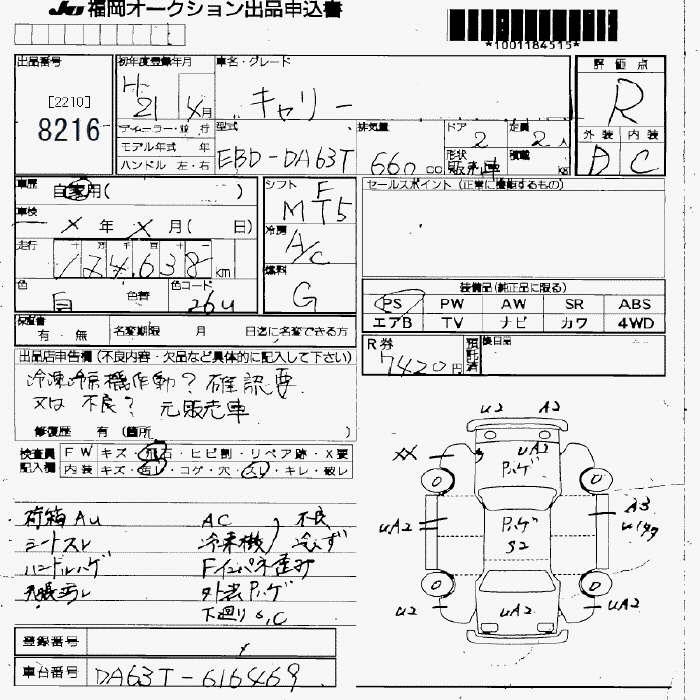 JU 福岡オークション出品申込書
*1001184515*
出品番号
[2210]
8216
初年度登録年月
H 21 4月
ディーラー・並行
モデル年式 年
ハンドル 左・右
車名・グレード
キャリー
型式
EBD-DA63T
排気量
660 cc
ドア
2
定員
2人
形状
積載
kg
評価点
R
外装 内装
D C
車歴
自家用( )
車検
X 年 X 月( 日)
走行
十 万 千 百 十 一
124,638 km
色
白
色替
色コード
26U
シフト
F
MT5
冷房
A/C
燃料
G
セールスポイント(正常に機能するもの)
装備品(純正品に限る)
PS PW AW SR ABS
エアB TV ナビ カワ 4WD
保証書
有・無
名変期限 月 日迄に名変できる方
R券
7420円
預託済
後日品
出品店申告欄(不良内容・欠品など具体的に記入して下さい)
冷凍冷房機作動?確認要
又は不良? 元販売車
修復歴 有(箇所 )
検査員記入欄
FW キズ・飛石・ヒビ割・リペア跡・X要
内装 キズ・汚レ・コゲ・穴・スレ・キレ・破レ
荷箱AU
シートスレ
ハンドルハゲ
天張汚レ
AC
冷凍機
不良
冷えず
Fインパネ歪み
外装Pハゲ
下廻りS,C
U2 A2
XX
UA2
Pハゲ
UA2
Pハゲ
S2
A3
U2
UA2
UA2
登録番号
車台番号
DA63T-616469